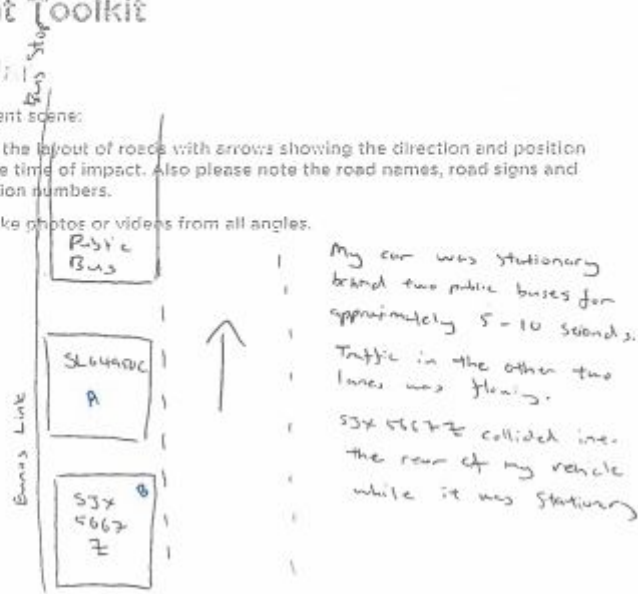 t Toolkit
Bus Stop
ent scene:
the layout of roads with arrows showing the direction and position
e time of impact. Also please note the road names, road signs and
ion numbers.
ke photos or videos from all angles.
Public
Bus
A
B
SJX
5667
Z
Link
My car was stationary
behind two public buses for
approximately 5-10 seconds.
Traffic in the other two
lanes was flowing.
SJX 5667 Z collided into
the rear of my vehicle
while it was stationary